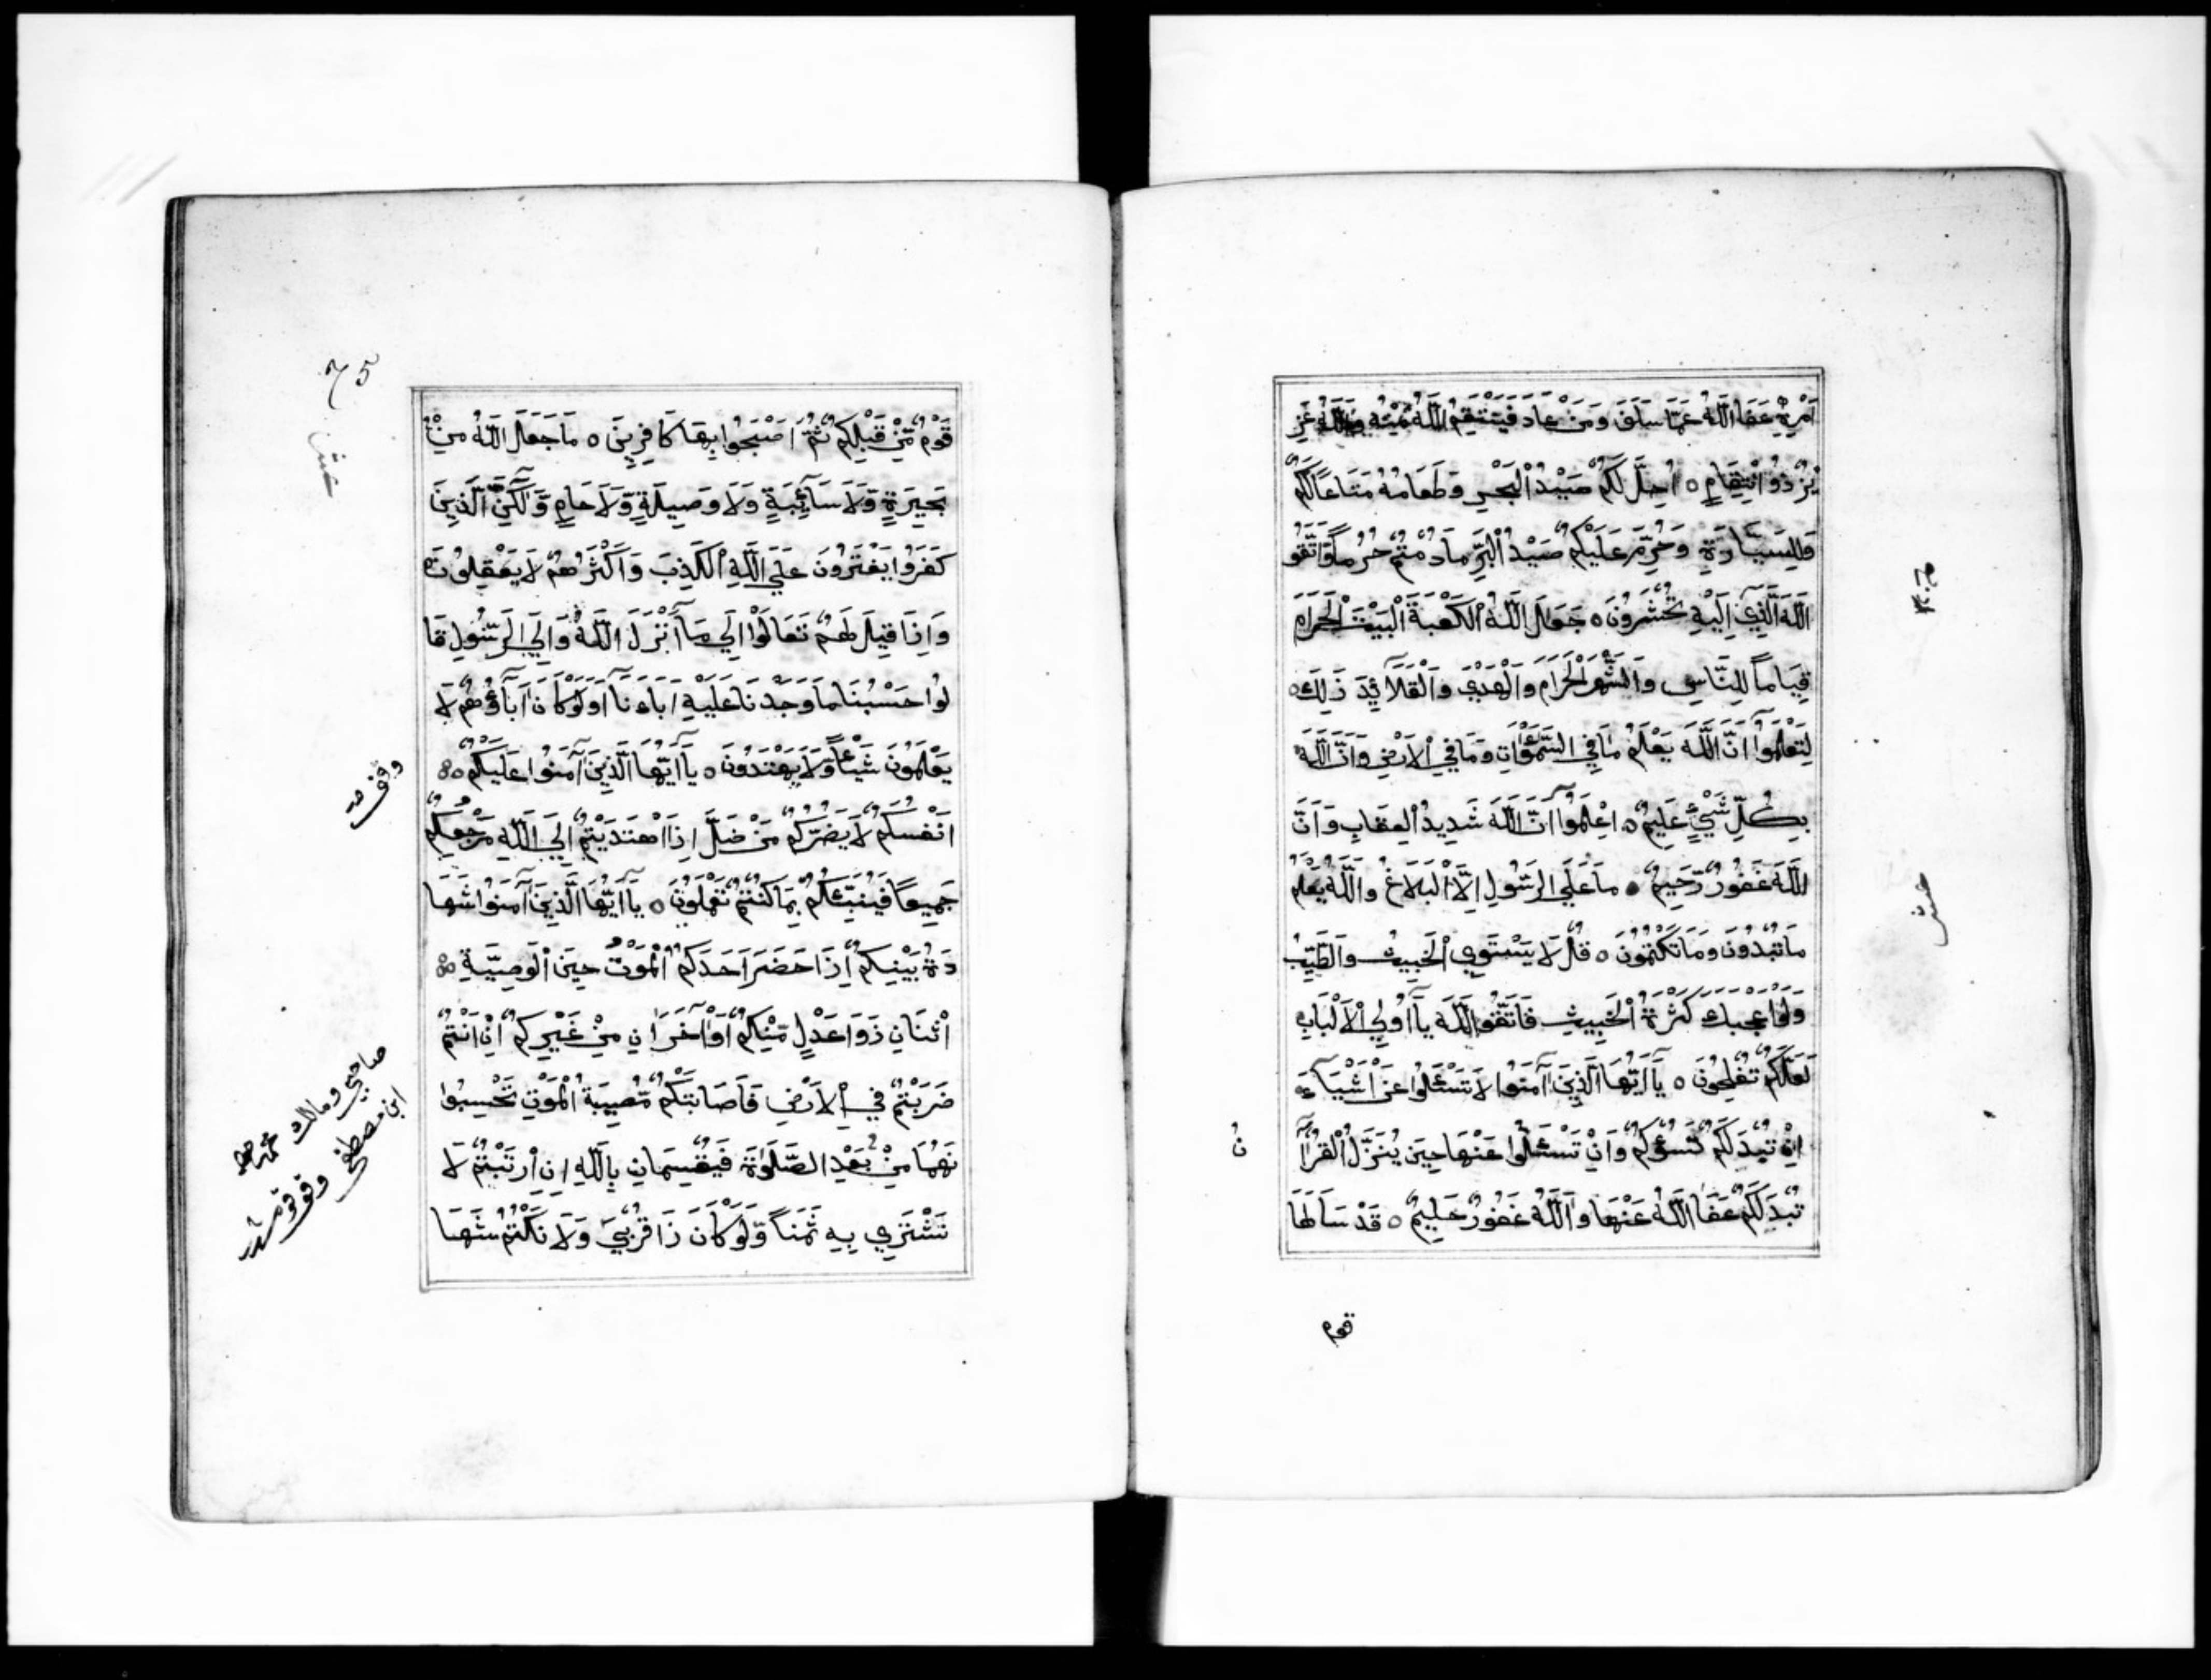 اَمْرِهِ عَفَا اللَّهُ عَمَّا سَلَفَ وَمَنْ عَادَ فَيَنْتَقِمُ اللَّهُ مِنْهُ وَاللَّهُ عَزِ
يْزٌ ذُو انْتِقَامٍ ٥ اُحِلَّ لَكُمْ صَيْدُ الْبَحْرِ وَطَعَامُهُ مَتَاعًا لَكُمْ
وَلِلسَّيَّارَةِ وَحُرِّمَ عَلَيْكُمْ صَيْدُ الْبَرِّ مَا دُمْتُمْ حُرُمًا وَاتَّقُو
اللَّهَ الَّذِي اِلَيْهِ تُحْشَرُونَ ٥ جَعَلَ اللَّهُ الْكَعْبَةَ الْبَيْتَ الْحَرَامَ
قِيَامًا لِلنَّاسِ وَالشَّهْرَ الْحَرَامَ وَالْهَدْيَ وَالْقَلَآئِدَ ذَلِكَ
لِتَعْلَمُوا اَنَّ اللَّهَ يَعْلَمُ مَا فِي السَّمٰوَاتِ وَمَا فِي الْاَرْضِ وَاَنَّ اللَّهَ
بِكُلِّ شَيْءٍ عَلِيمٌ ٥ اِعْلَمُوا اَنَّ اللَّهَ شَدِيدُ الْعِقَابِ وَاَنَّ
اللَّهَ غَفُورٌ رَحِيمٌ ٥ مَا عَلَى الرَّسُولِ اِلَّا الْبَلَاغُ وَاللَّهُ يَعْلَمُ
مَا تُبْدُونَ وَمَا تَكْتُمُونَ ٥ قُلْ لَا يَسْتَوِي الْخَبِيثُ وَالطَّيِّبُ
وَلَوْ اَعْجَبَكَ كَثْرَةُ الْخَبِيثِ فَاتَّقُوا اللَّهَ يَآ اُولِي الْاَلْبَابِ
لَعَلَّكُمْ تُفْلِحُونَ ٥ يَآ اَيُّهَا الَّذِينَ آمَنُوا لَا تَسْئَلُوا عَنْ اَشْيَآءَ
اِنْ تُبْدَ لَكُمْ تَسُؤْكُمْ وَاِنْ تَسْئَلُوا عَنْهَا حِينَ يُنَزَّلُ الْقُرْآ
نُ
تُبْدَ لَكُمْ عَفَا اللَّهُ عَنْهَا وَاللَّهُ غَفُورٌ حَلِيمٌ ٥ قَدْ سَاَلَهَا
قوم
عشر
75
قَوْمٌ مِّنْ قَبْلِكُمْ ثُمَّ اَصْبَحُوا بِهَا كَافِرِينَ ٥ مَا جَعَلَ اللَّهُ مِنْ
بَحِيرَةٍ وَّلَا سَآئِبَةٍ وَّلَا وَصِيلَةٍ وَّلَا حَامٍ وَّلَكِنَّ الَّذِينَ
كَفَرُوا يَفْتَرُونَ عَلَى اللَّهِ الْكَذِبَ وَاَكْثَرُهُمْ لَا يَعْقِلُونَ
وَاِذَا قِيلَ لَهُمْ تَعَالَوْا اِلَى مَآ اَنْزَلَ اللَّهُ وَاِلَى الرَّسُولِ قَا
لُوا حَسْبُنَا مَا وَجَدْنَا عَلَيْهِ اَبَاءَنَآ اَوَلَوْ كَانَ اَبَآؤُهُمْ لَا
يَعْلَمُونَ شَيْئًا وَّلَا يَهْتَدُونَ ٥ يَآ اَيُّهَا الَّذِينَ آمَنُوا عَلَيْكُمْ
اَنْفُسَكُمْ لَا يَضُرُّكُمْ مَنْ ضَلَّ اِذَا اهْتَدَيْتُمْ اِلَى اللَّهِ مَرْجِعُكُمْ
جَمِيعًا فَيُنَبِّئُكُمْ بِمَا كُنْتُمْ تَعْمَلُونَ ٥ يَآ اَيُّهَا الَّذِينَ آمَنُوا شَهَا
دَةُ بَيْنِكُمْ اِذَا حَضَرَ اَحَدَكُمُ الْمَوْتُ حِينَ الْوَصِيَّةِ
اثْنَانِ ذَوَا عَدْلٍ مِّنْكُمْ اَوْ آخَرَانِ مِنْ غَيْرِكُمْ اِنْ اَنْتُمْ
ضَرَبْتُمْ فِي الْاَرْضِ فَاَصَابَتْكُمْ مُّصِيبَةُ الْمَوْتِ تَحْبِسُوا
نَهُمَا مِنْ بَعْدِ الصَّلَوٰةِ فَيُقْسِمَانِ بِاللَّهِ اِنِ ارْتَبْتُمْ لَا
نَشْتَرِي بِهِ ثَمَنًا وَّلَوْ كَانَ ذَا قُرْبَى وَلَا نَكْتُمُ شَهَا
عشر
صاحبي ومالك
ابن مصطفى